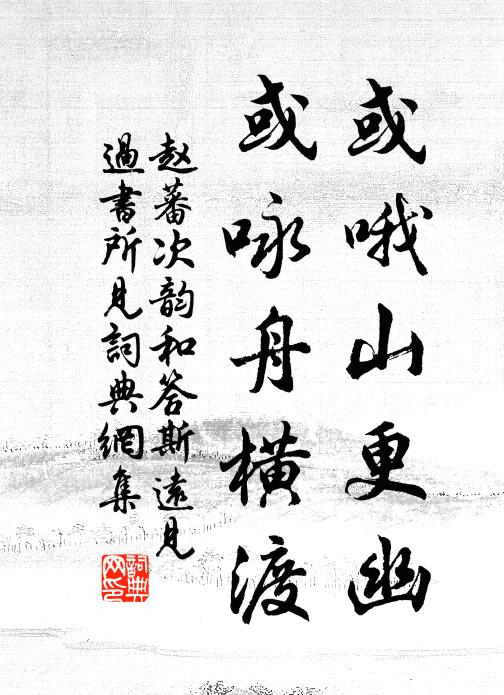 或哦山更幽
或咏舟橫渡
赵蕃次韵和答斯遠見
過書所見詞典網集
詞典
网印